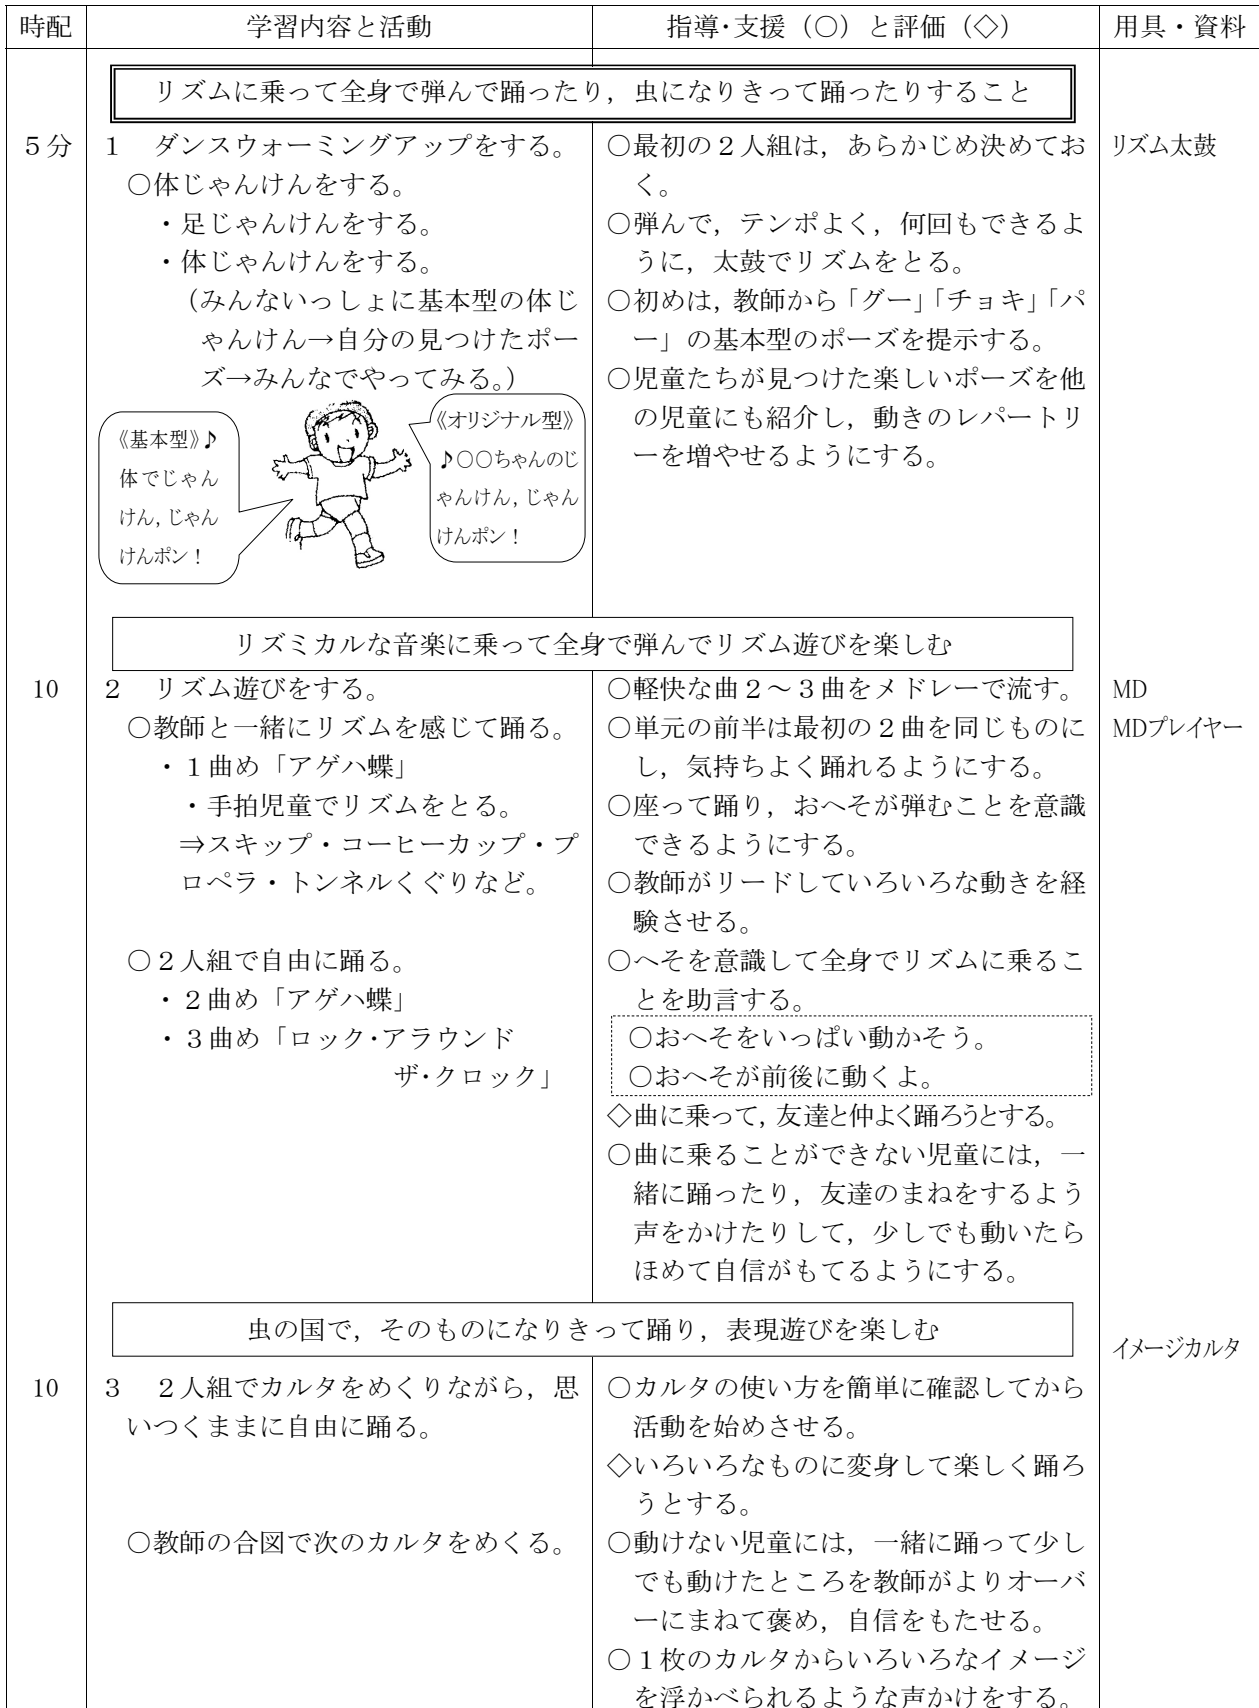 時配 学習内容と活動 指導・支援（○）と評価（◇） 用具・資料
リズムに乗って全身で弾んで踊ったり，虫になりきって踊ったりすること
５分
１　ダンスウォーミングアップをする。
○体じゃんけんをする。
・足じゃんけんをする。
・体じゃんけんをする。
（みんないっしょに基本型の体じ
ゃんけん→自分の見つけたポー
ズ→みんなでやってみる。）
《基本型》♪
体でじゃん
けん，じゃん
けんポン！
《オリジナル型》
♪○○ちゃんのじ
ゃんけん，じゃん
けんポン！
○最初の２人組は，あらかじめ決めてお
く。
○弾んで，テンポよく，何回もできるよ
うに，太鼓でリズムをとる。
○初めは，教師から「グー」「チョキ」「パ
ー」の基本型のポーズを提示する。
○児童たちが見つけた楽しいポーズを他
の児童にも紹介し，動きのレパートリ
ーを増やせるようにする。
リズム太鼓
リズミカルな音楽に乗って全身で弾んでリズム遊びを楽しむ
10
２　リズム遊びをする。
○教師と一緒にリズムを感じて踊る。
・１曲め「アゲハ蝶」
・手拍児童でリズムをとる。
⇒スキップ・コーヒーカップ・プ
ロペラ・トンネルくぐりなど。
○２人組で自由に踊る。
・２曲め「アゲハ蝶」
・３曲め「ロック・アラウンド
ザ・クロック」
○軽快な曲２～３曲をメドレーで流す。
○単元の前半は最初の２曲を同じものに
し，気持ちよく踊れるようにする。
○座って踊り，おへそが弾むことを意識
できるようにする。
○教師がリードしていろいろな動きを経
験させる。
○へそを意識して全身でリズムに乗るこ
とを助言する。
○おへそをいっぱい動かそう。
○おへそが前後に動くよ。
◇曲に乗って，友達と仲よく踊ろうとする。
○曲に乗ることができない児童には，一
緒に踊ったり，友達のまねをするよう
声をかけたりして，少しでも動いたら
ほめて自信がもてるようにする。
MD
MDプレイヤー
虫の国で，そのものになりきって踊り，表現遊びを楽しむ
イメージカルタ
10
３　２人組でカルタをめくりながら，思
いつくままに自由に踊る。
○教師の合図で次のカルタをめくる。
○カルタの使い方を簡単に確認してから
活動を始めさせる。
◇いろいろなものに変身して楽しく踊ろ
うとする。
○動けない児童には，一緒に踊って少し
でも動けたところを教師がよりオーバ
ーにまねて褒め，自信をもたせる。
○１枚のカルタからいろいろなイメージ
を浮かべられるような声かけをする。